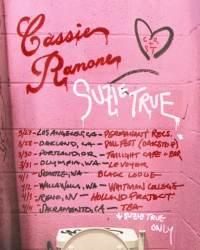 Cassie
Ramone
SUZIE
TRUE
3/27-LOS ANGELES, CA - PERMANENT RECS.
3/28-OAKLAND, CA - DOLLFEST (OAKSTOP)
3/30-PORTLAND, OR - TWILIGHT CAFE + BAR
3/31-OLYMPIA, WA - LE VOYEUR
4/1-SEATTLE, WA - BLACK LODGE
4/2-WALLA WALLA, WA - WHITMAN COLLEGE
RENO, NV - HOLLAND PROJECT
SACRAMENTO, CA - TBA
* SUZIE TRUE
ONLY